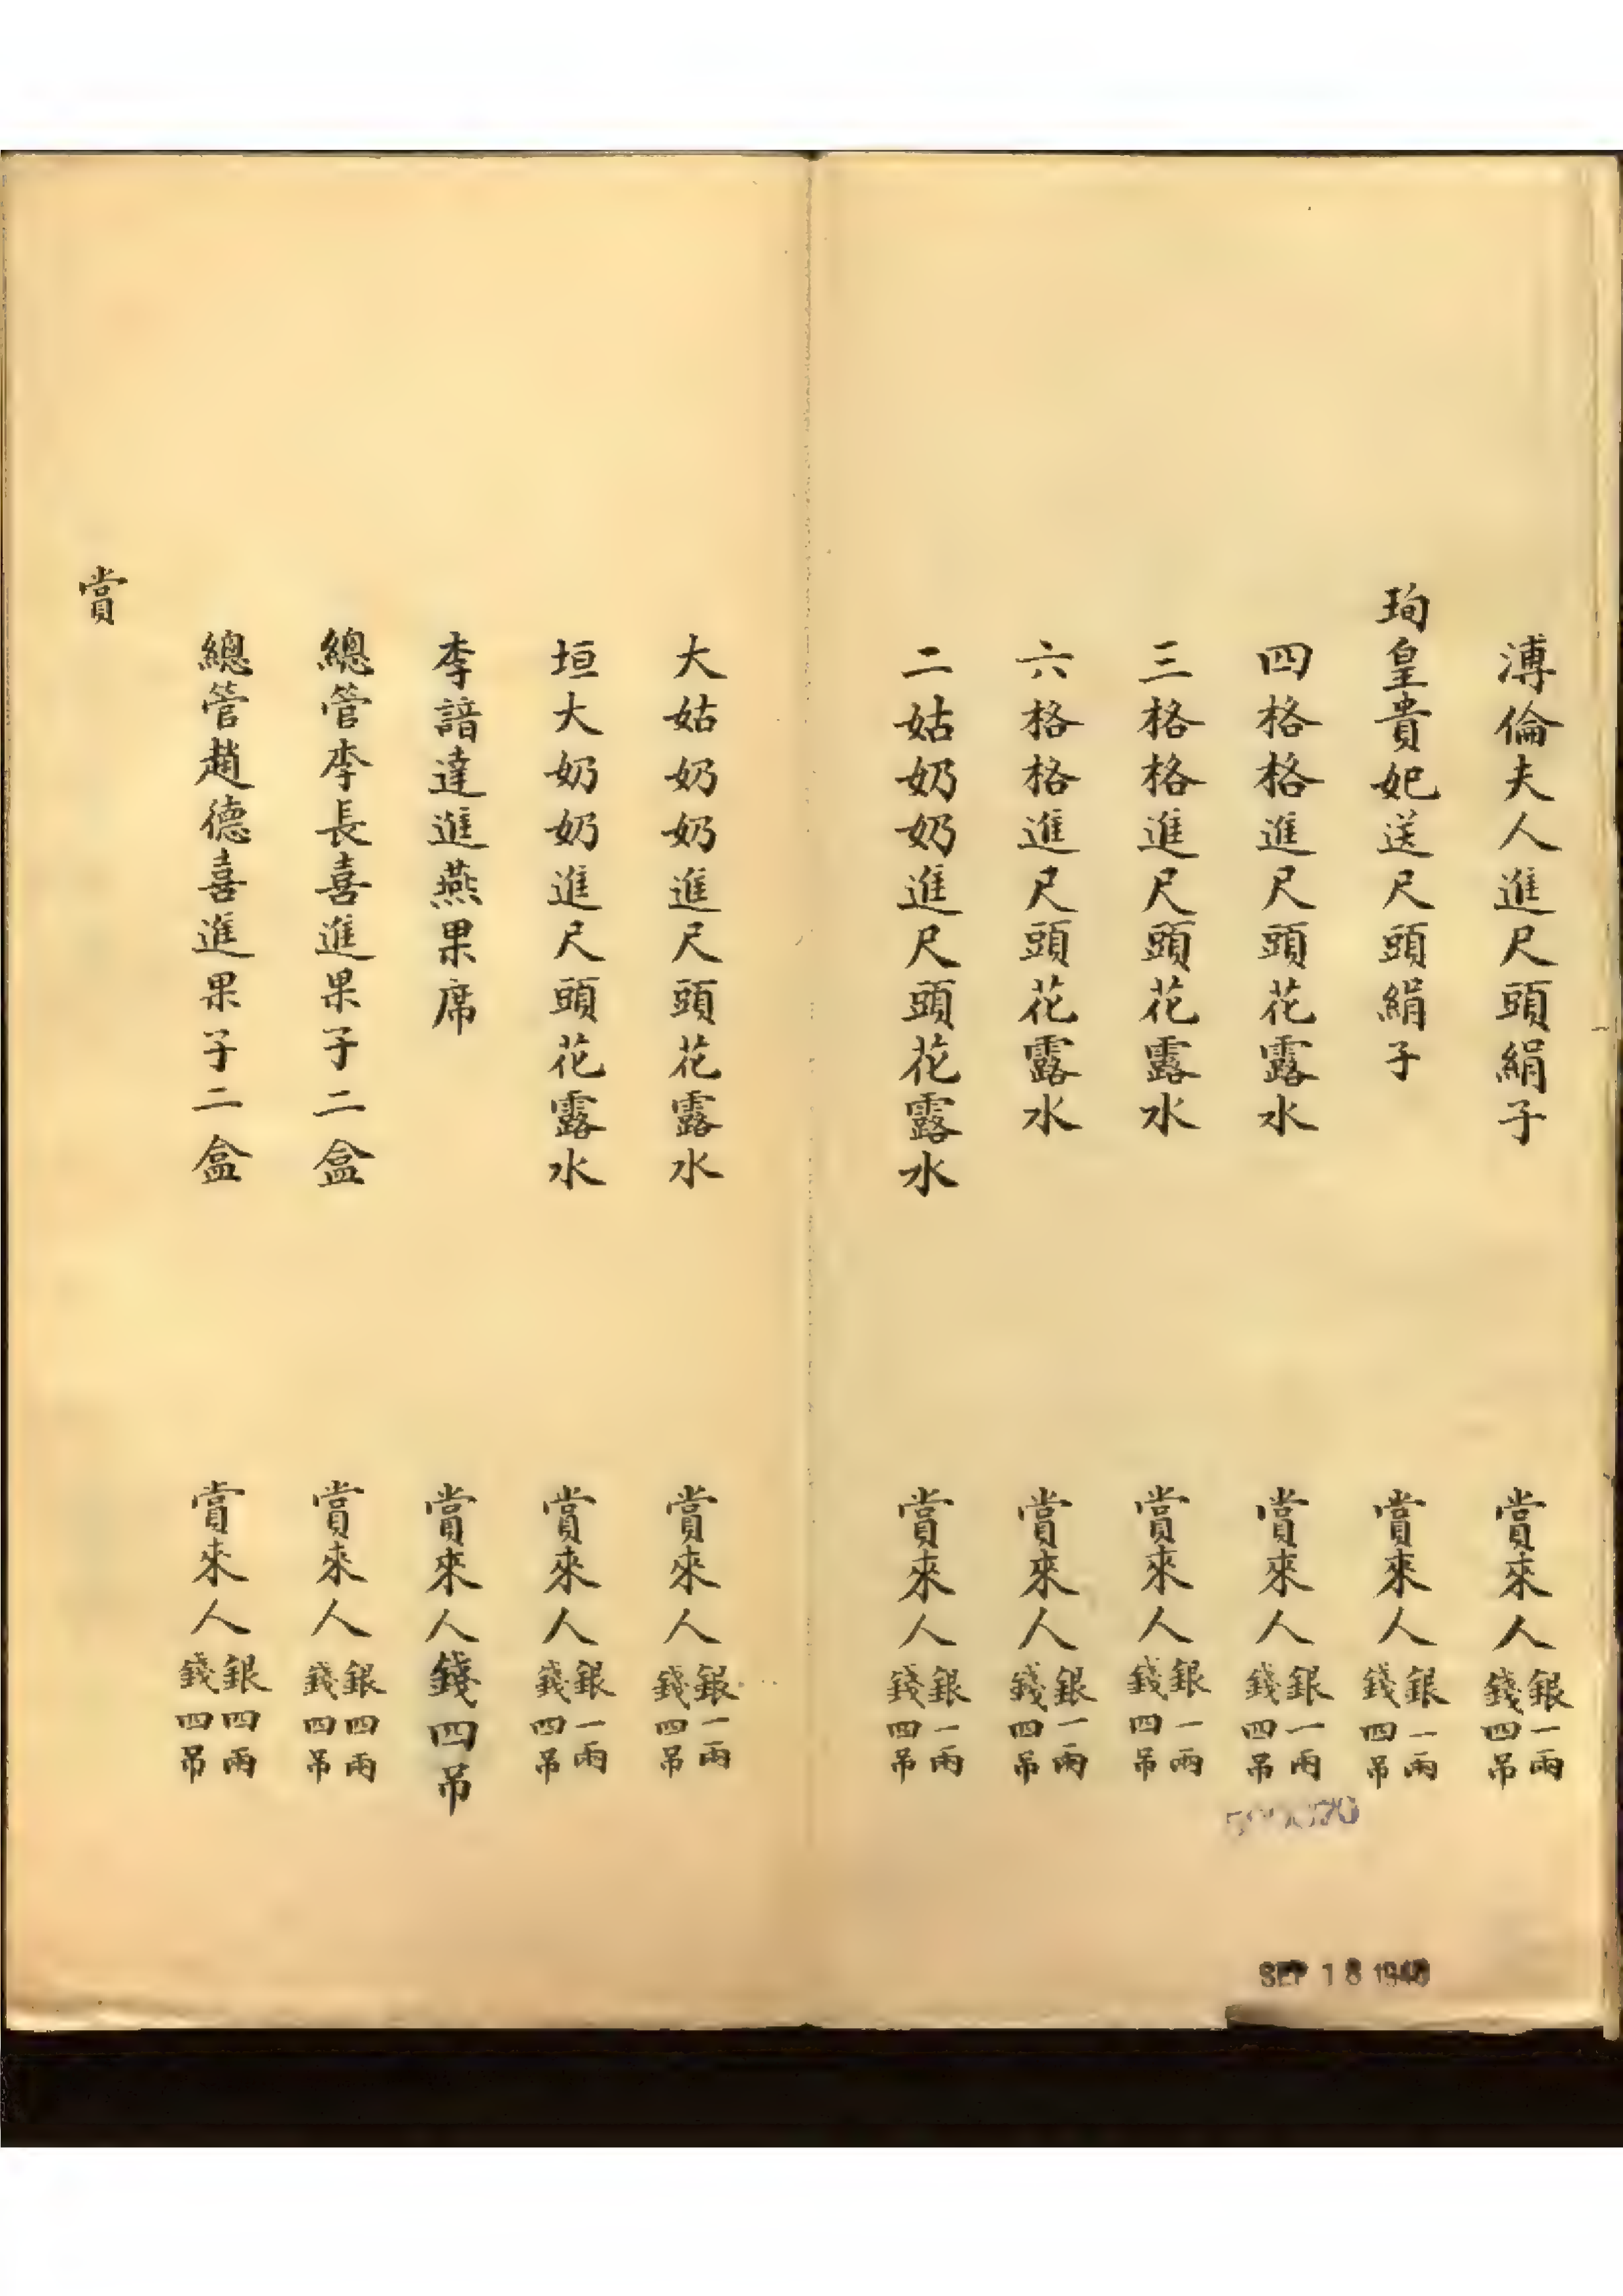 溥倫夫人進尺頭絹子 賞來人銀一兩錢四吊
珣皇貴妃送尺頭絹子 賞來人銀一兩錢四吊
四格格進尺頭花露水 賞來人銀一兩錢四吊
三格格進尺頭花露水 賞來人銀一兩錢四吊
六格格進尺頭花露水 賞來人銀一兩錢四吊
二姑奶奶進尺頭花露水 賞來人銀一兩錢四吊
大姑奶奶進尺頭花露水 賞來人銀一兩錢四吊
垣大奶奶進尺頭花露水 賞來人銀一兩錢四吊
李諳達進燕果席 賞來人錢四吊
總管李長喜進果子二盒 賞來人銀四兩錢四吊
總管趙德喜進果子二盒 賞來人銀四兩錢四吊
賞
SEP 18 1940